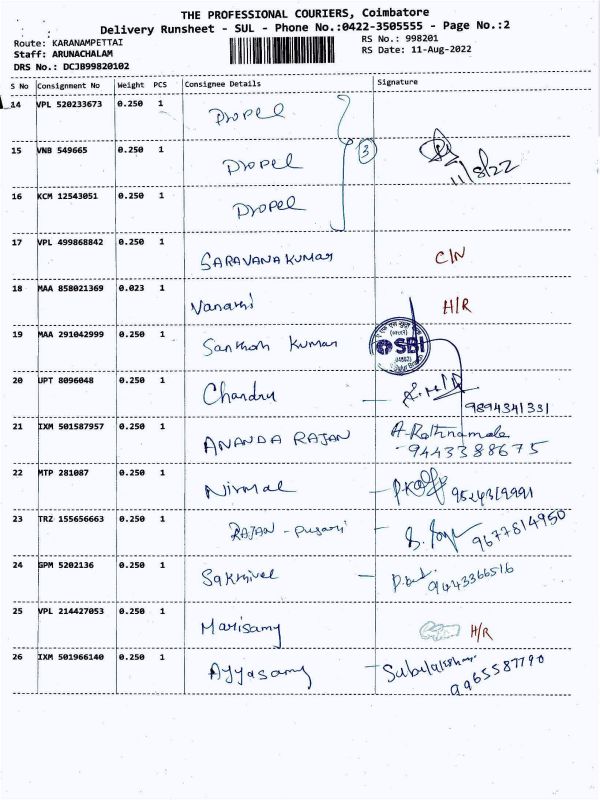 THE PROFESSIONAL COURIERS, Coimbatore
Delivery Runsheet - SUL - Phone No.:0422-3505555 - Page No.:2
Route: KARANAMPETTAI RS No.: 998201
Staff: ARUNACHALAM RS Date: 11-Aug-2022
DRS No.: DCJB99820102
S No Consignment No Weight PCS Consignee Details Signature
14 VPL 520233673 0.250 1 Propel
15 VNB 549665 0.250 1 Propel 3 11/8/22
16 KCM 12543051 0.250 1 Propel
17 VPL 499868842 0.250 1 SARAVANA KUMAR C/N
18 MAA 858021369 0.023 1 Vanathi H/R
19 MAA 291042999 0.250 1 Santhosh Kumar SBI
20 UPT 8096048 0.250 1 Chandru 9894341331
21 IXM 501587957 0.250 1 ANANDA RAJAN A. Rathnamala
9443388675
22 MTP 281087 0.250 1 Nirmal 9524319991
23 TRZ 155656663 0.250 1 RAJAN - Pusari 9677814950
24 GPM 5202136 0.250 1 Sakthivel 9443366516
25 VPL 214427053 0.250 1 Marisamy H/R
26 IXM 501966140 0.250 1 Ayyasamy
9965587790